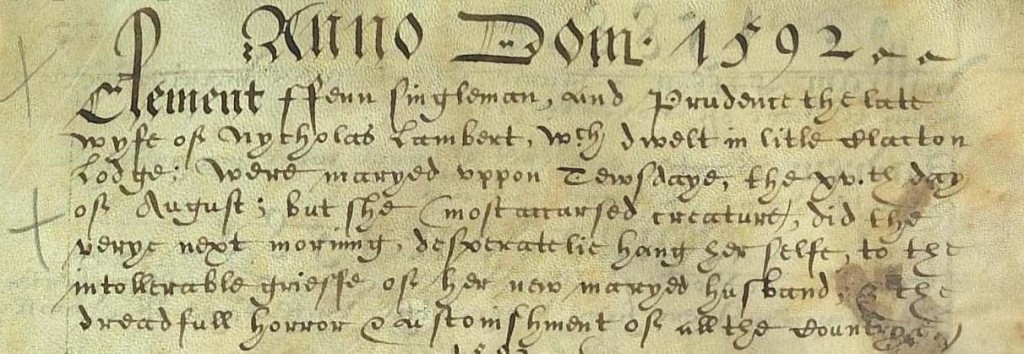 Anno Dom: 1592
Clement ffenn singleman, and Prudence the late
wyfe of Nycholas Lambert, wch dwelt in litle Clacton
Lodge; were maryed uppon Tewsdaye, the xv.th day
of August; but she (most accursed creature), did the
verye next morning, desperatelie hang her selfe, to the
intollerable grieffe of her new maryed husband, & the
dreadfull horror & astonishment of all the Countrye